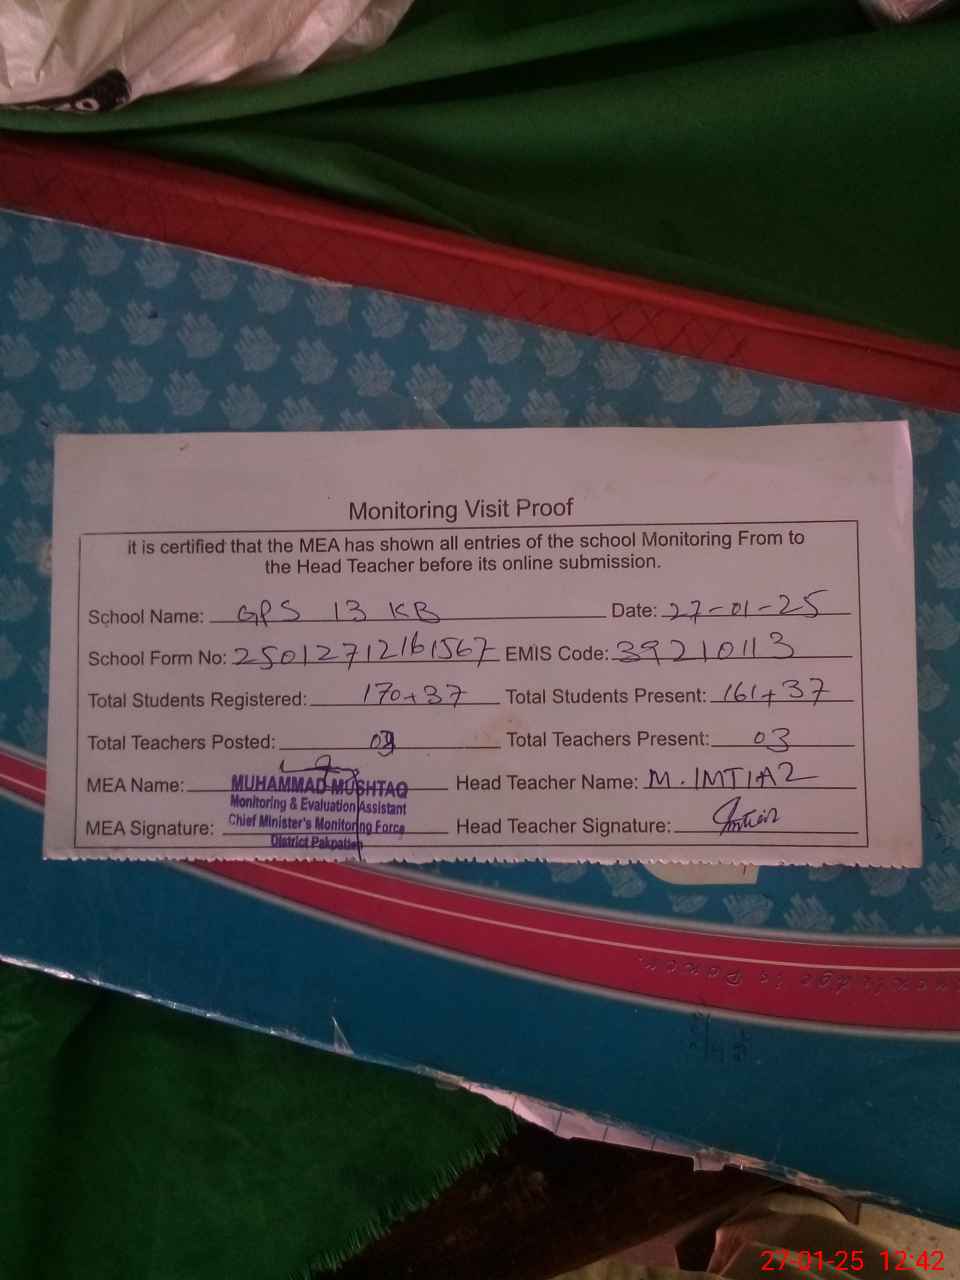 Monitoring Visit Proof
it is certified that the MEA has shown all entries of the school Monitoring From to
the Head Teacher before its online submission.
School Name: GPS 13 KB Date: 27-01-25
School Form No: 25012712161567 EMIS Code: 39210113
Total Students Registered: 170+37 Total Students Present: 161+37
Total Teachers Posted: Total Teachers Present: 03
MEA Name: MUHAMMAD MUSHTAQ Head Teacher Name: M. IMTIAZ
Monitoring & Evaluation Assistant
Chief Minister's Monitoring Force
MEA Signature: Head Teacher Signature: Imtiaz
District Pakpatten
Knowledge is Power.
27-01-25 12:42